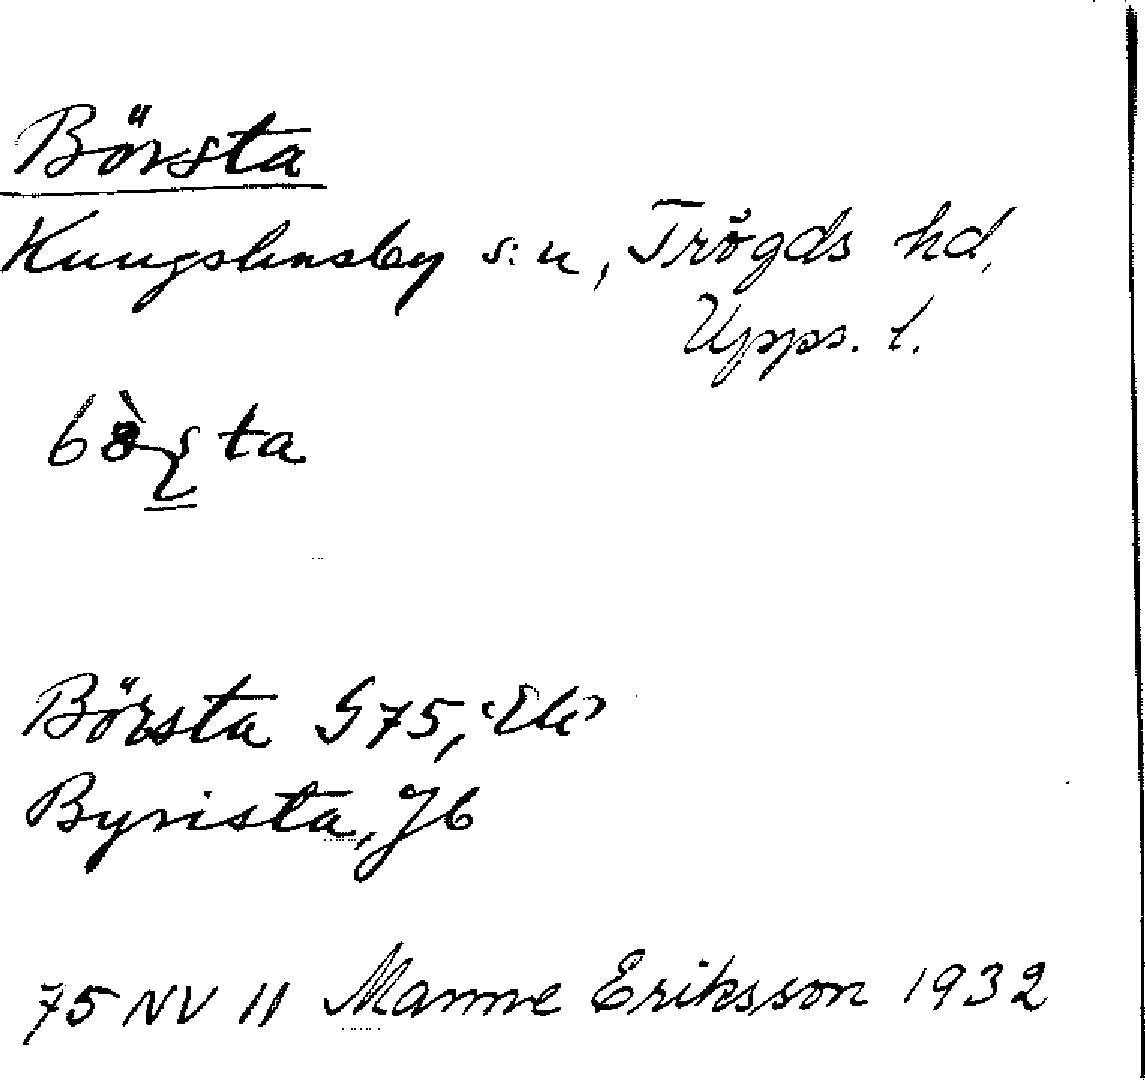 Börsta
Kungshusby s:n, Trögds hd,
Upps. l.
Börsta G75,
Byrista, Jb
75 NV 11 Manne Eriksson 1932